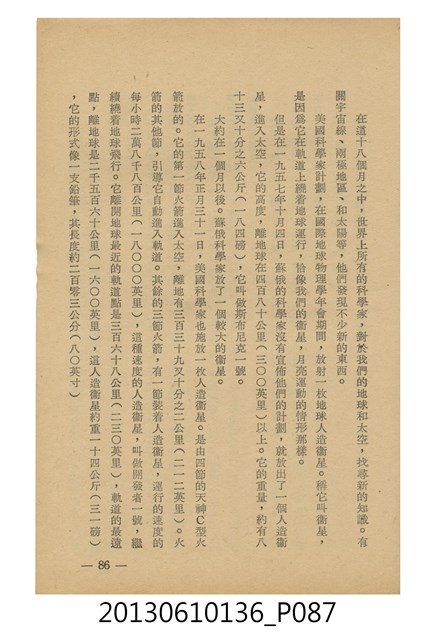 在這十八個月之中，世界上所有的科學家，對於我們的地球和太空，找尋新的知識。有
關宇宙線、兩極地區、和太陽等，他們發現不少新的東西。
美國科學家計劃，在國際地球物理學年會期間，放射一枚地球人造衞星。稱它叫衞星，
是因爲它在軌道上繞着地球運行，恰像我們的衞星，月亮運動的情形那樣。
但是在一九五七年十月四日，蘇俄的科學家沒有宣佈他們的計劃，就放出了一個人造衞
星，進入太空，它的高度，離地球在四百八十公里（三〇〇英里）以上。它的重量，約有八
十三又十分之六公斤（一八四磅），它叫做斯布尼克一號。
大約在一個月以後。蘇俄科學家放了一個較大的衞星。
在一九五八年正月三十一日，美國科學家也施放一枚人造衞星。是由四節的天神C型火
箭放的。它的第一節火箭進入太空，離地有三百三十九又十分之二公里（二一二英里）。火
箭的其他節，引導它自動進入軌道。其餘的三節火箭，有一節裝着人造衞星，運行的速度的
每小時二萬八千八百公里（一八〇〇〇英里），這種速度的人造衞星，叫做開發者一號，繼
續繞着地球飛行。它離開地球最近的軌道點是三百六十八公里（二三〇英里），軌道的最遠
點，離地球是二千五百六十公里（一六〇〇英里），這人造衞星約重一十四公斤（三一磅）
，它的形式像一支鉛筆，其長度約二百零三公分（八〇英寸）
— 86 —
20130610136_P087